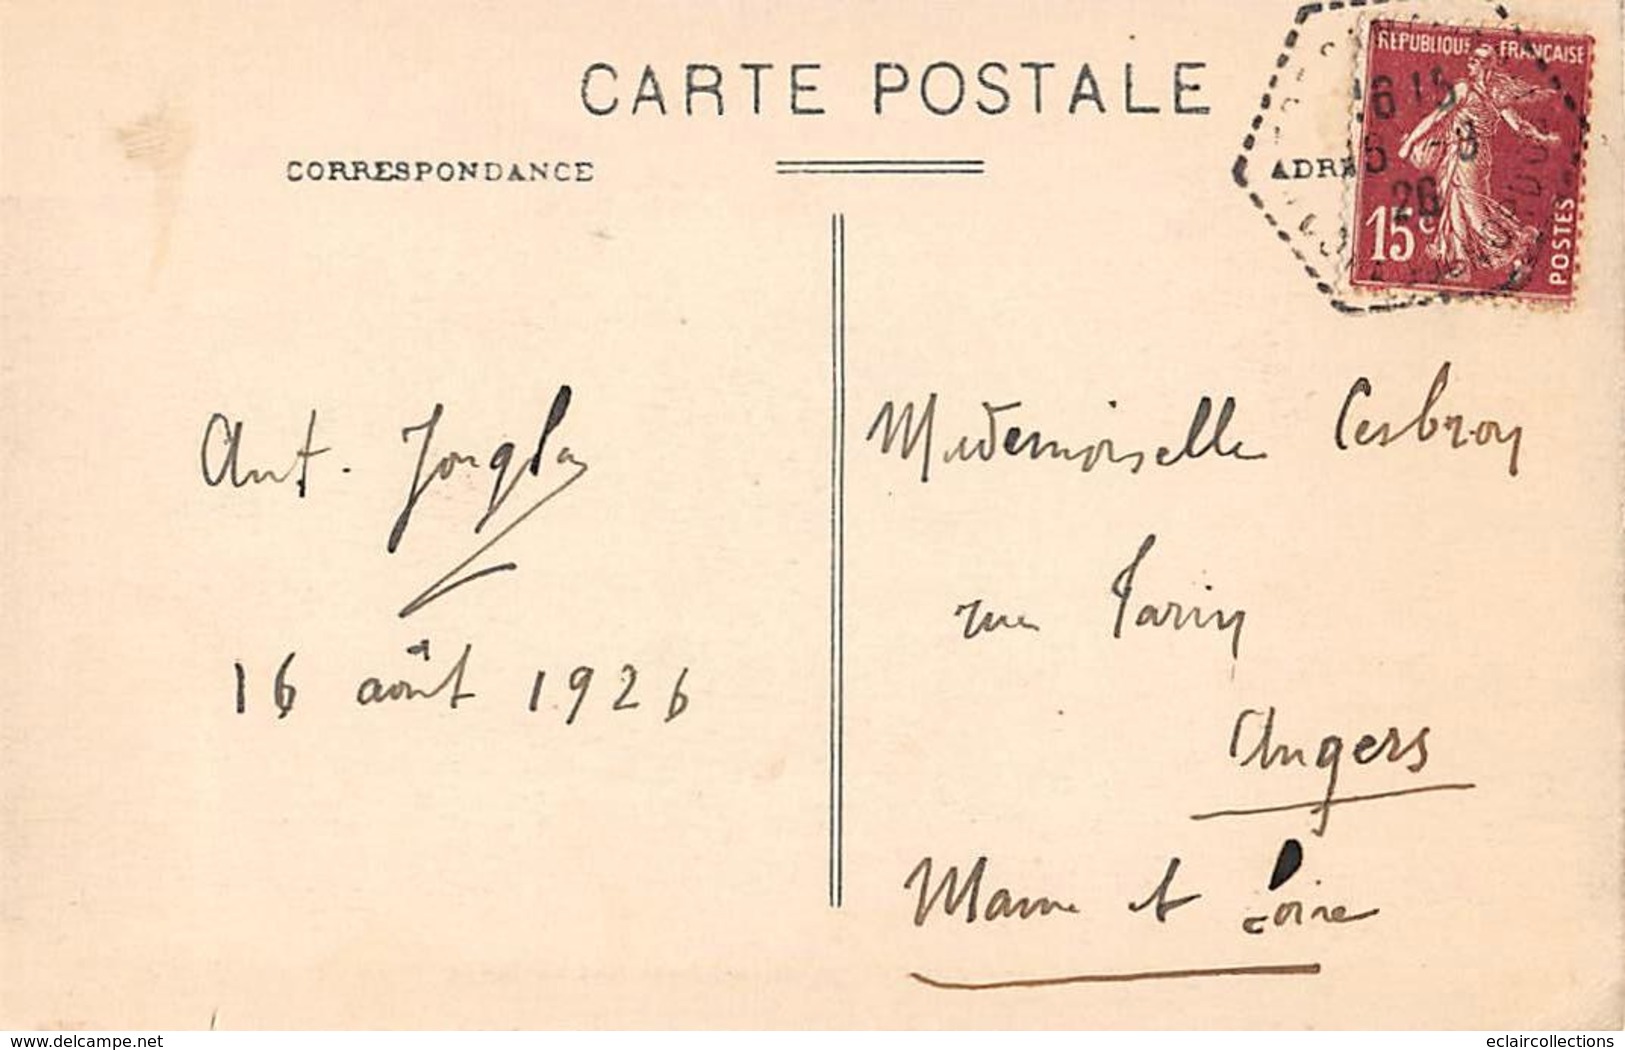 CARTE POSTALE
CORRESPONDANCE
ADRE
REPUBLIQUE FRANÇAISE
16 15
-8
26
15c
POSTES
Ant. Jongla
16 août 1926
Mademoiselle Cesbron
rue Tarin
Angers
Maine et Loire
delcampe.net
eclaircollections